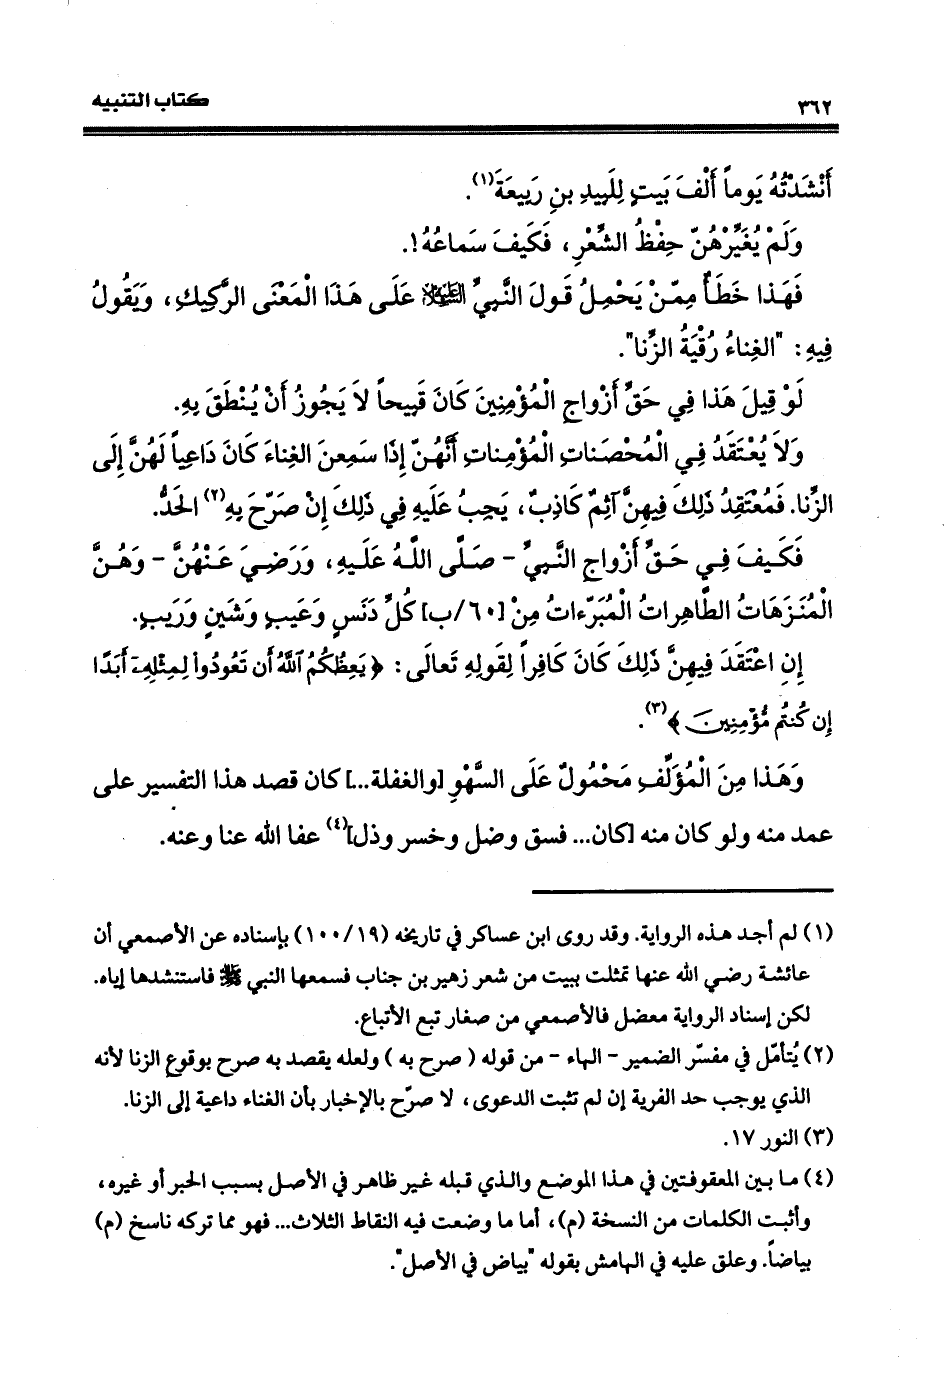 ٣٦٢
كتاب التنبيه
أَنْشَدْتُهُ يَوماً أَلْفَ بَيتٍ لِلَبِيدِ بنِ رَبِيعَةَ(١).
وَلَمْ يُغَيِّرْهُنّ حِفْظُ الشِّعْرِ، فَكَيفَ سَماعُهُ!.
فَهَذا خَطَأٌ مِمّنْ يَحْمِلُ قَولَ النَّبِيِّ عَلَى هَذا الْمَعْنَى الرَّكِيكِ، وَيَقُولُ
فِيهِ: "الغِناءُ رُقْيَةُ الزِّنا".
لَوْ قِيلَ هَذا فِي حَقِّ أَزْواجِ الْمُؤْمِنِينَ كَانَ قَبِيحاً لاَ يَجُوزُ أَنْ يُنْطَقَ بِهِ.
وَلاَ يُعْتَقَدُ فِي الْمُحْصَناتِ الْمُؤْمِناتِ أَنَّهُنّ إِذَا سَمِعنَ الغِناءَ كَانَ دَاعِياً لَهُنَّ إِلَى
الزِّنا. فَمُعْتَقِدُ ذَلِكَ فِيهِنَّ آثِمٌ كَاذِبٌ، يَجِبُ عَلَيهِ فِي ذَلِكَ إِنْ صَرّحَ بِهِ(٢) الحَدُّ.
فَكَيفَ فِي حَقِّ أَزْواجِ النَّبِيِّ - صَلَّى اللهُ عَلَيهِ، وَرَضِيَ عَنْهُنَّ - وَهُنَّ
الْمُنَزهَاتُ الطَّاهِراتُ الْمُبَرّءاتُ مِنْ [٦٠/ب] كُلِّ دَنَسٍ وَعَيبٍ وَشَينٍ وَرَيبٍ.
إِنِ اعْتَقَدَ فِيهِنَّ ذَلِكَ كَانَ كَافِراً لِقَولِهِ تَعَالَى: ﴿يَعِظُكُمُ ٱللَّهُ أَن تَعُودُوا۟ لِمِثْلِهِۦٓ أَبَدًا
إِن كُنتُم مُّؤْمِنِينَ﴾(٣).
وَهَذا مِنَ الْمُؤَلِّفِ مَحْمُولٌ عَلَى السَّهْوِ [والغفلة...] كان قصد هذا التفسير على
عمد منه ولو كان منه [كان... فسق وضل وخسر وذل](٤) عفا الله عنا وعنه.
(١) لم أجد هذه الرواية. وقد روى ابن عساكر في تاريخه (١٠٠/١٩) بإسناده عن الأصمعي أن
عائشة رضي الله عنها تمثلت ببيت من شعر زهير بن جناب فسمعها النبي ﷺ فاستنشدها إياه.
لكن إسناد الرواية معضل فالأصمعي من صغار تبع الأتباع.
(٢) يُتأمّل في مفسّر الضمير - الهاء - من قوله (صرح به) ولعله يقصد به صرح بوقوع الزنا لأنه
الذي يوجب حد الفرية إن لم تثبت الدعوى، لا صرّح بالإخبار بأن الغناء داعية إلى الزنا.
(٣) النور ١٧.
(٤) ما بين المعقوفتين في هذا الموضع والذي قبله غير ظاهر في الأصل بسبب الحبر أو غيره،
وأثبت الكلمات من النسخة (م)، أما ما وضعت فيه النقاط الثلاث... فهو مما تركه ناسخ (م)
بياضاً. وعلق عليه في الهامش بقوله "بياض في الأصل".